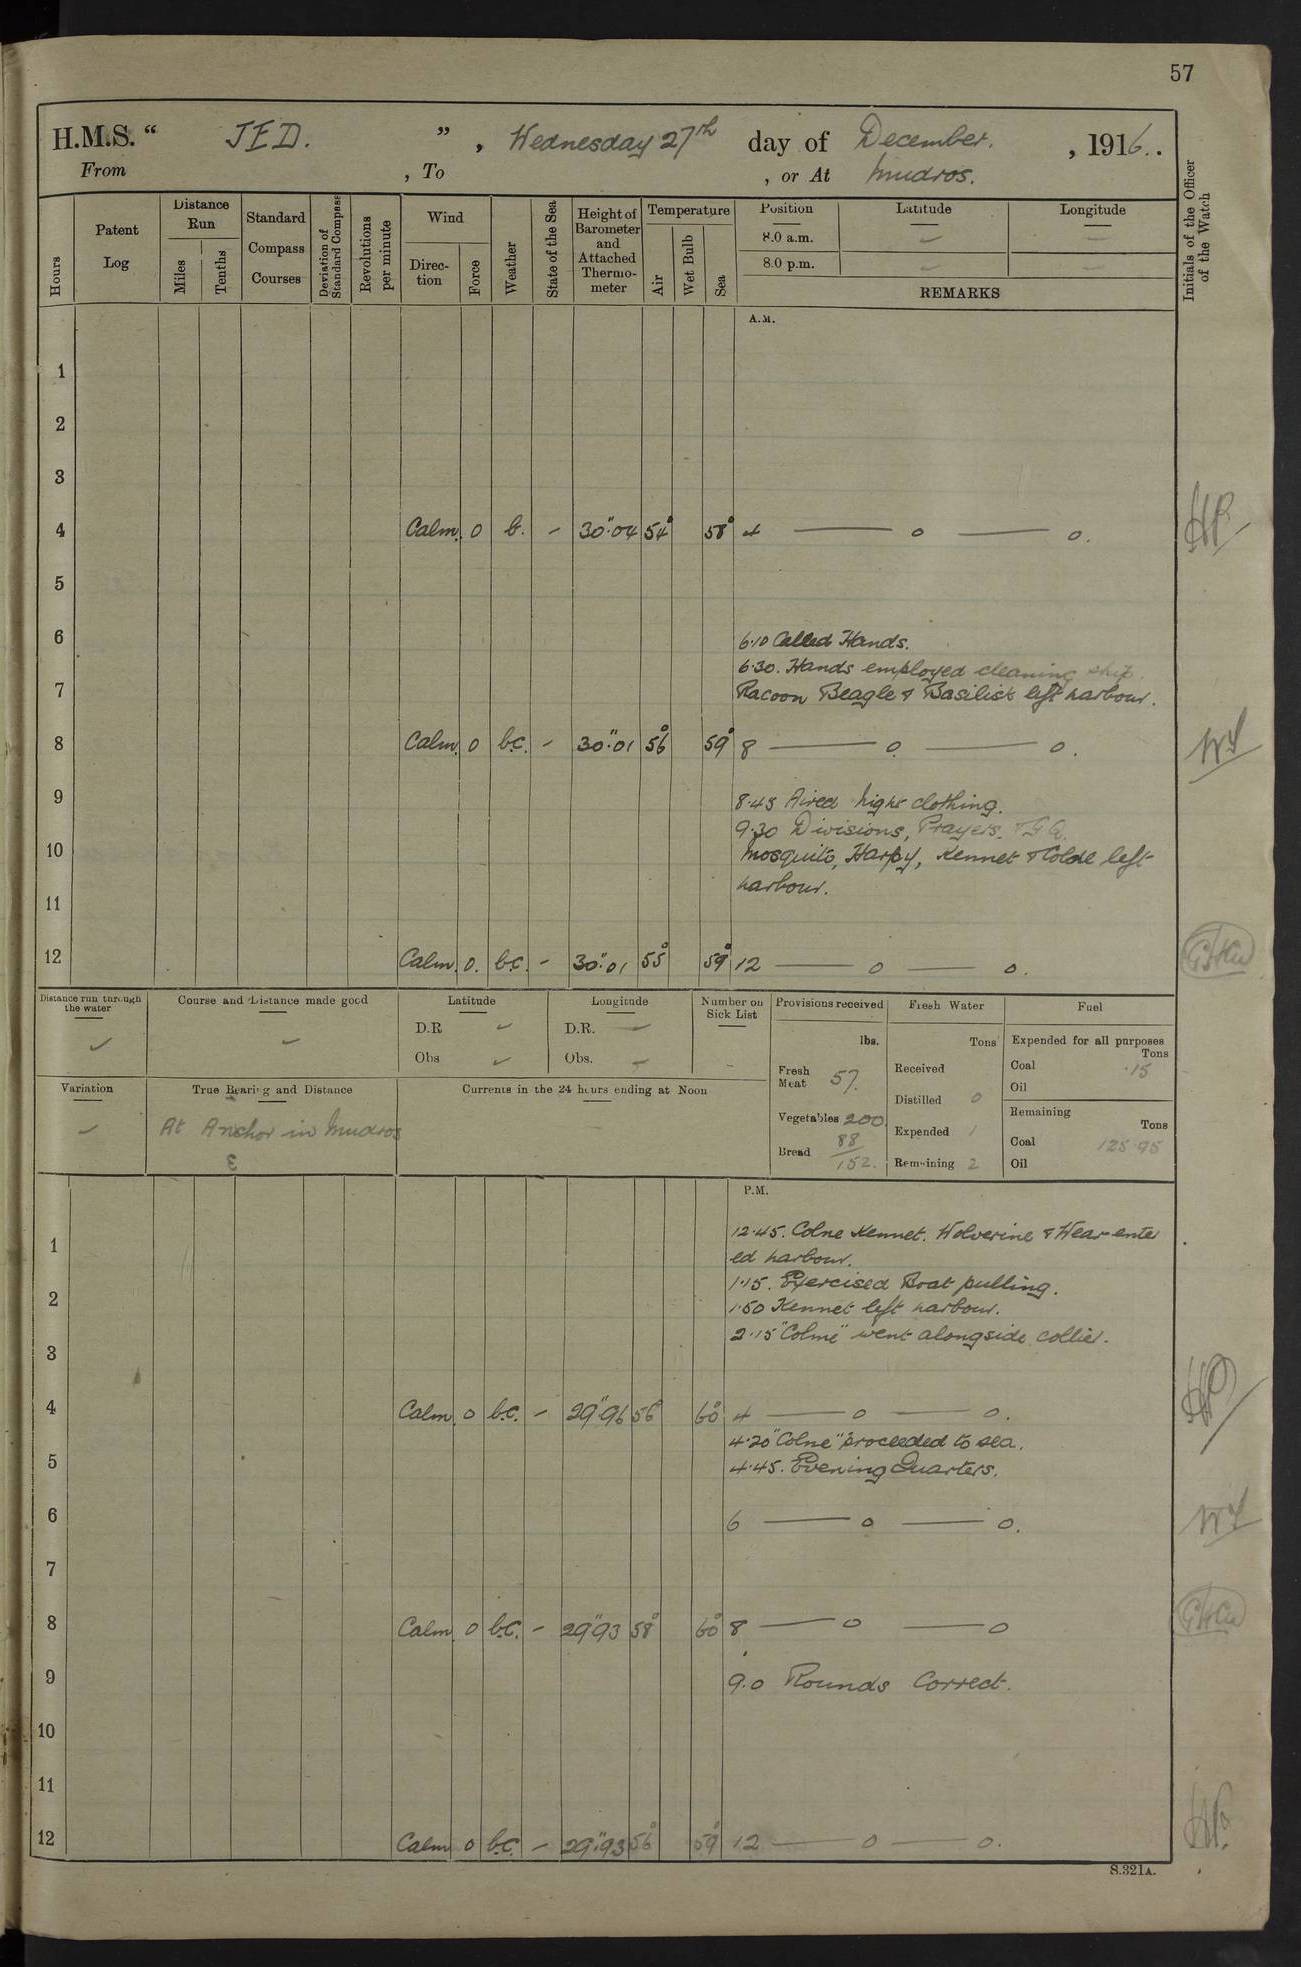 57
H.M.S. “ JED. ” , Wednesday 27th day of December. , 1916..
From , To , or At Mudros.
Hours
Patent Log
Distance Run
Miles
Tenths
Standard Compass Courses
Deviation of Standard Compass
Revolutions per minute
Wind
Direction
Force
Weather
State of the Sea
Height of Barometer and Attached Thermometer
Temperature
Air
Wet Bulb
Sea
Position Latitude Longitude
8.0 a.m.
8.0 p.m.
REMARKS
Initials of the Officer of the Watch
A.M.
1
2
3
4 Calm. 0 b. - 30".04 54° 58° 4 — 0 — 0.
5
6
6.10 Called Hands.
6.30. Hands employed cleaning ship.
7 Racoon Beagle & Basilisk left harbour.
8 Calm. 0 b.c. - 30".01 56° 59° 8 — 0 — 0.
9
8.45 Aired night clothing.
9.30 Divisions, Prayers, & G.Q.
10 Mosquito, Harpy, Kennet & Colne left
harbour.
11
12 Calm. 0. b.c. - 30".01 55° 59° 12 — 0 — 0.
Distance run through the water
Course and Distance made good
Latitude
D.R
Obs
Longitude
D.R.
Obs.
Number on Sick List
-
Provisions received
lbs.
Fresh Meat 57.
Vegetables 200
Bread 88
152.
Fresh Water
Tons
Received
Distilled 0
Expended 1
Remaining 2
Fuel
Expended for all purposes
Tons
Coal .15
Oil
Remaining
Tons
Coal 125.95
Oil
Variation
True Bearing and Distance
At Anchor in Mudros
Currents in the 24 hours ending at Noon
P.M.
12.45. Colne Kennet. Wolverine & Wear enter
1 ed harbour.
1.15. Exercised Boat pulling.
2 1.50 Kennet left harbour.
2.15 "Colne" went alongside collier.
3
4 Calm. 0 b.c. - 29".96 56° 60° 4 — 0 — 0.
4.20 "Colne" proceeded to sea.
5 4.45. Evening Quarters.
6 6 — 0 — 0.
7
8 Calm. 0 b.c. - 29".93 58° 60° 8 — 0 — 0
9 9.0 Rounds Correct.
10
11
12 Calm 0 b.c. - 29".93 56° 59° 12 — 0 — 0.
S.321A.